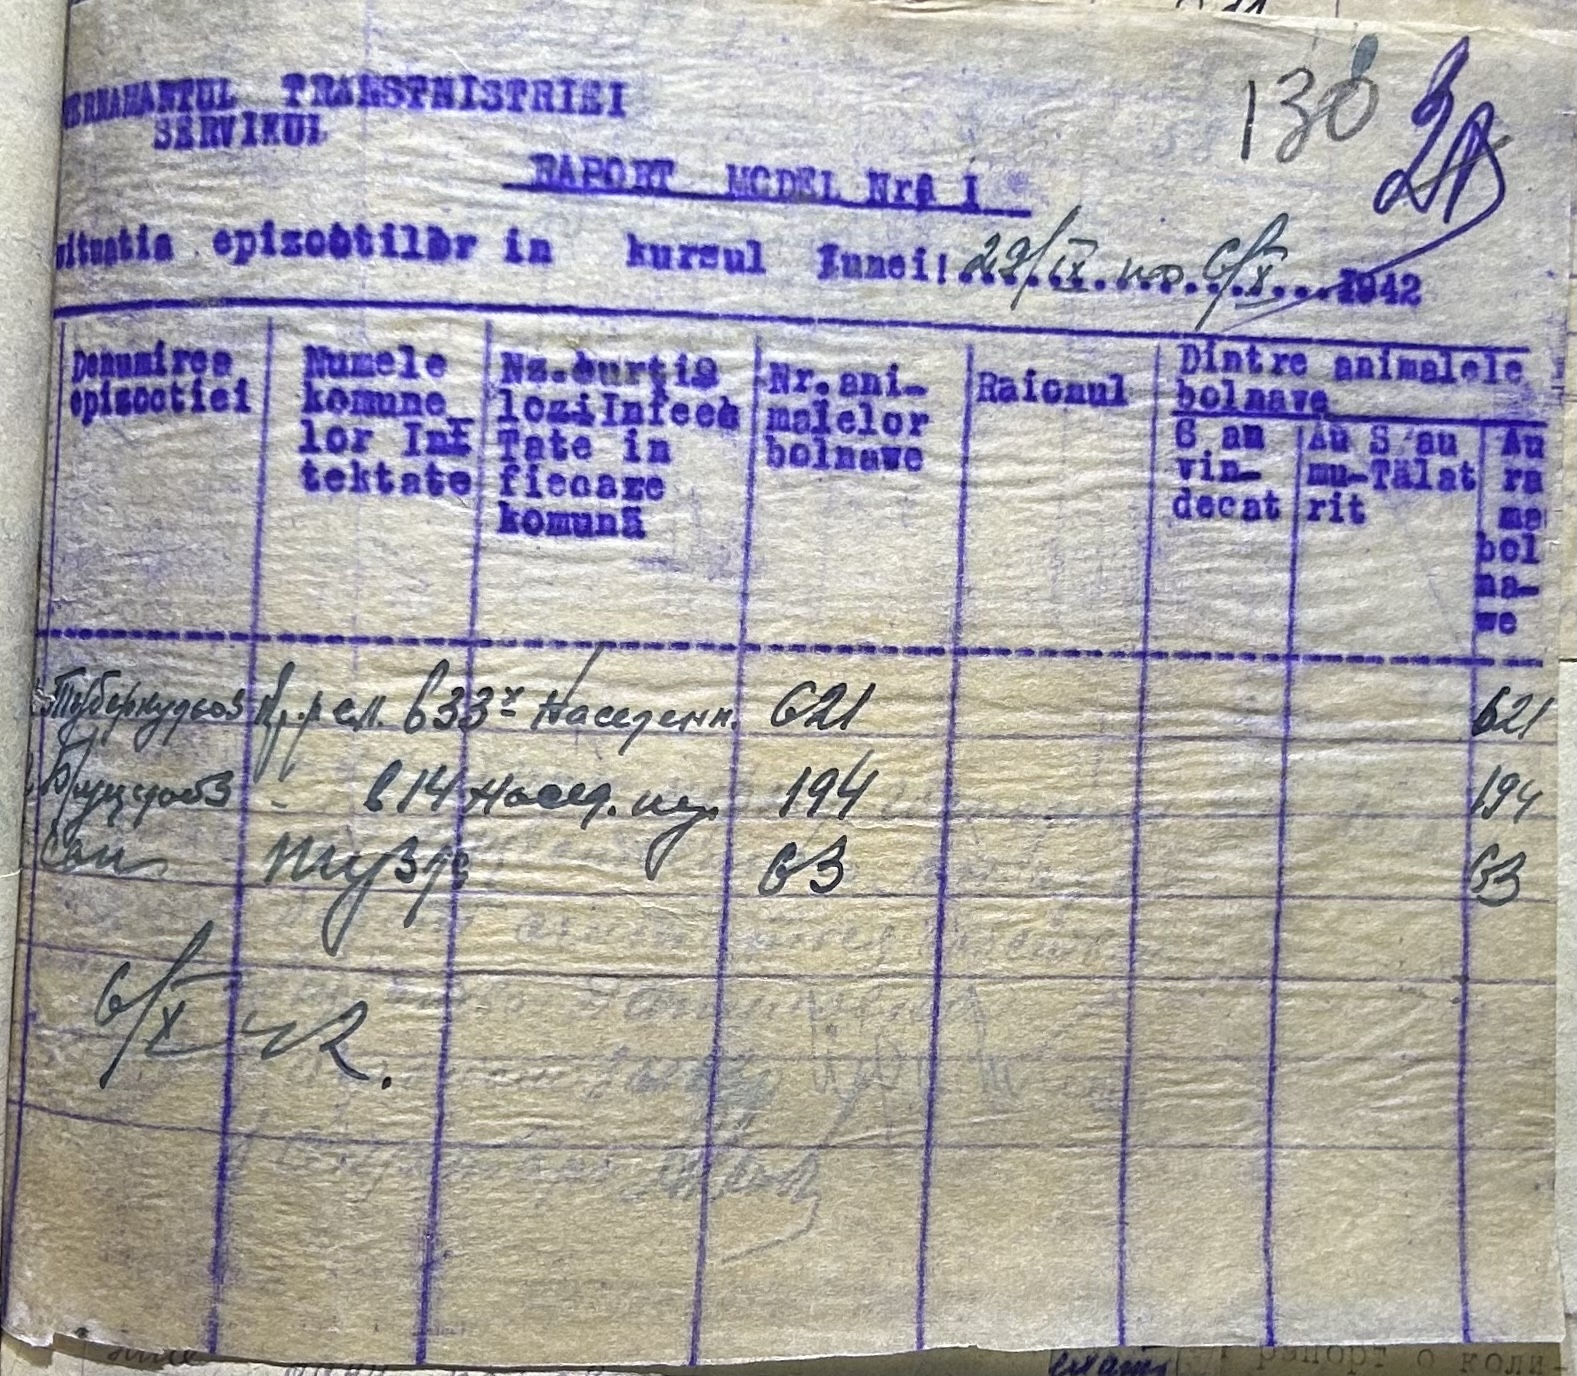 ERNAMANTUL TRANSTNISTRIEI
SERVIKUL
130
RAPORT MODEL Nr. I
situatia epizootiilor in kursul Lunei: 29/IX по 6/X 1942
Denumirea epizootiei
Numele komune_ lor Inf tektate
Nz.curtiø lozi Infect Tate in fiecare komună
Nr. ani- malelor bolnawe
Raionul
Dintre animalele bolnawe
S au vin- decat
Au mu- rit
S/au Tălat
Au ra ma bol na- we
Туберкулоз в 33х населенн. 621 621
Бруцелоз - в 14 насел. пу. 194 194
Сап 63 63
6/X 42.
рапорт о коли-